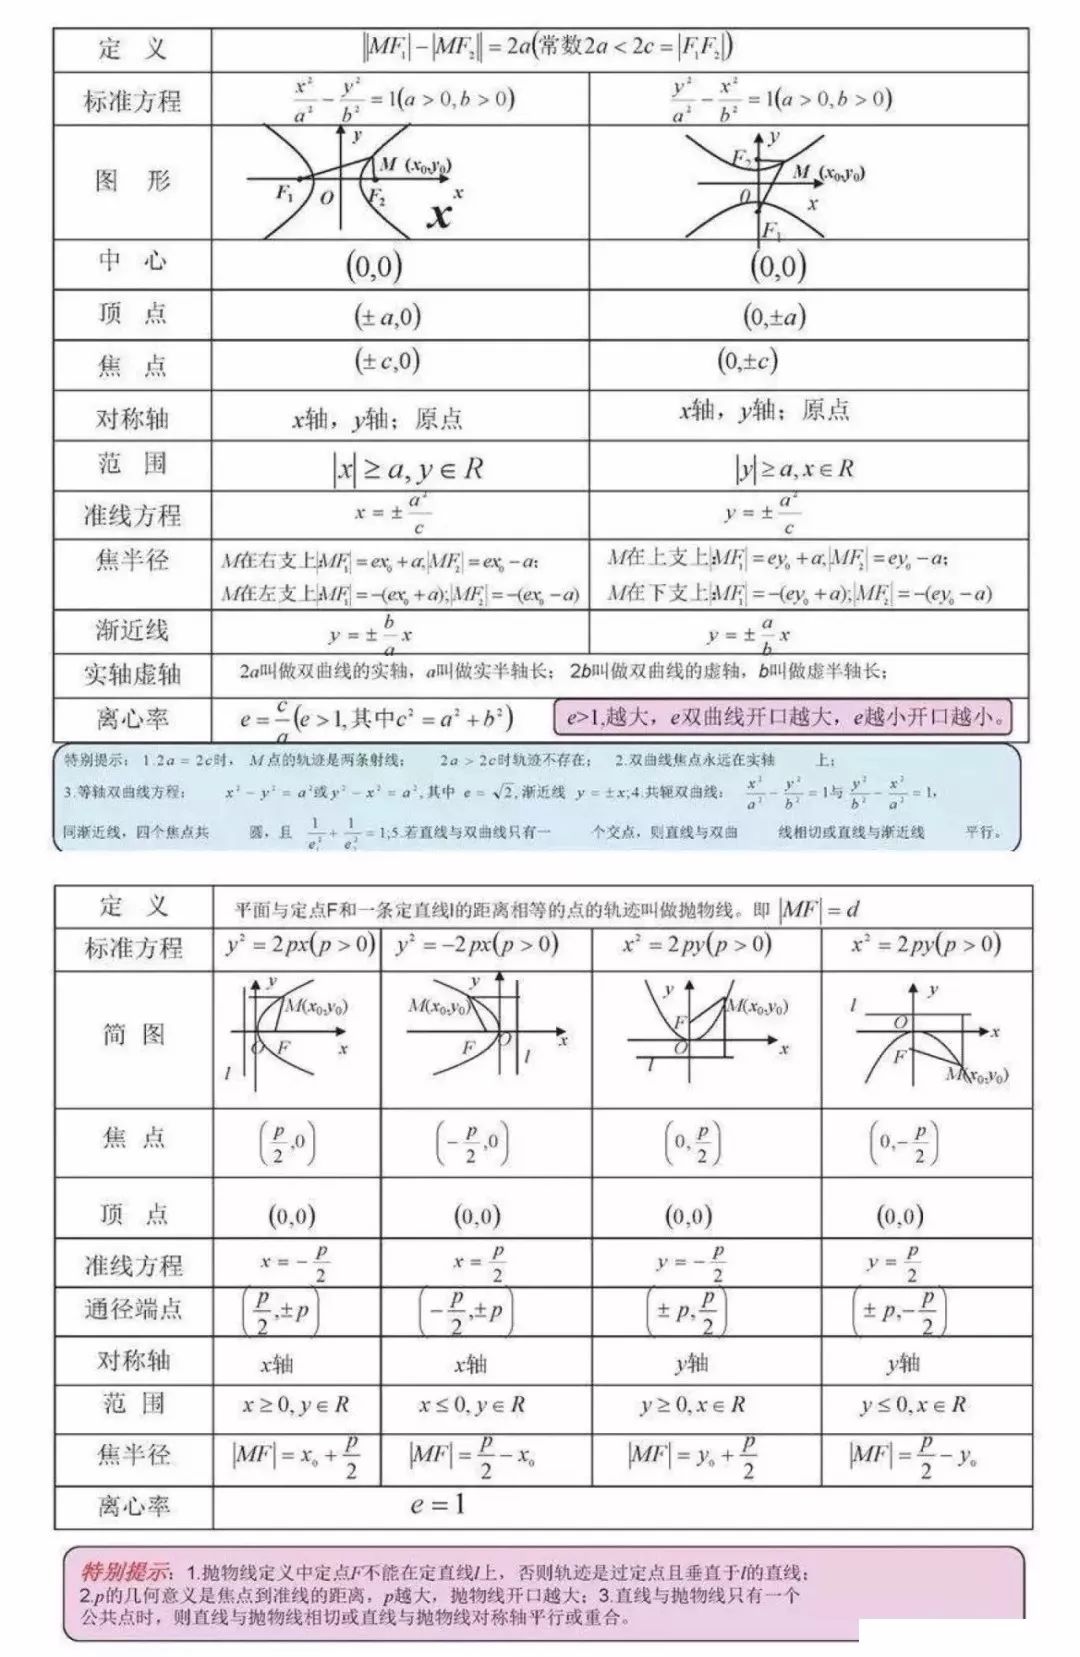 定 义 ||MF₁|−|MF₂||=2a(常数2a<2c=|F₁F₂|)
标准方程 x²/a² − y²/b² =1(a>0,b>0) y²/a² − x²/b² =1(a>0,b>0)
图 形 y M (x₀,y₀) F₁ O F₂ x x y F₂ M (x₀,y₀) 0 x F₁
中 心 (0,0) (0,0)
顶 点 (±a,0) (0,±a)
焦 点 (±c,0) (0,±c)
对称轴 x轴，y轴；原点 x轴，y轴；原点
范 围 |x|≥a,y∈R |y|≥a,x∈R
准线方程 x=±a²/c y=±a²/c
焦半径 M在右支上|MF₁|=ex₀+a;|MF₂|=ex₀−a; M在上支上|MF₁|=ey₀+a;|MF₂|=ey₀−a;
M在左支上|MF₁|=−(ex₀+a);|MF₂|=−(ex₀−a) M在下支上|MF₁|=−(ey₀+a);|MF₂|=−(ey₀−a)
渐近线 y=±b/a x y=±a/b x
实轴虚轴 2a叫做双曲线的实轴，a叫做实半轴长；2b叫做双曲线的虚轴，b叫做虚半轴长；
离心率 e=c/a(e>1,其中c²=a²+b²) e>1,越大，e双曲线开口越大，e越小开口越小。
特别提示：1.2a=2c时，M点的轨迹是两条射线； 2a>2c时轨迹不存在； 2.双曲线焦点永远在实轴 上；
3.等轴双曲线方程： x²−y²=a²或y²−x²=a²,其中 e=√2,渐近线 y=±x;4.共轭双曲线： x²/a² − y²/b² =1与 y²/b² − x²/a² =1,
同渐近线，四个焦点共 圆，且 1/e₁² + 1/e₂² =1;5.若直线与双曲线只有一 个交点，则直线与双曲 线相切或直线与渐近线 平行。
定 义 平面与定点F和一条定直线l的距离相等的点的轨迹叫做抛物线。即 |MF|=d
标准方程 y²=2px(p>0) y²=−2px(p>0) x²=2py(p>0) x²=2py(p>0)
简 图 y M(x₀,y₀) O F x l y M(x₀,y₀) F O x l y M(x₀,y₀) F O x l y l O x F M(x₀,y₀)
焦 点 (p/2,0) (−p/2,0) (0,p/2) (0,−p/2)
顶 点 (0,0) (0,0) (0,0) (0,0)
准线方程 x=−p/2 x=p/2 y=−p/2 y=p/2
通径端点 (p/2,±p) (−p/2,±p) (±p,p/2) (±p,−p/2)
对称轴 x轴 x轴 y轴 y轴
范 围 x≥0,y∈R x≤0,y∈R y≥0,x∈R y≤0,x∈R
焦半径 |MF|=x₀+p/2 |MF|=p/2−x₀ |MF|=y₀+p/2 |MF|=p/2−y₀
离心率 e=1
特别提示：1.抛物线定义中定点F不能在定直线l上，否则轨迹是过定点且垂直于l的直线；
2.p的几何意义是焦点到准线的距离，p越大，抛物线开口越大；3.直线与抛物线只有一个
公共点时，则直线与抛物线相切或直线与抛物线对称轴平行或重合。